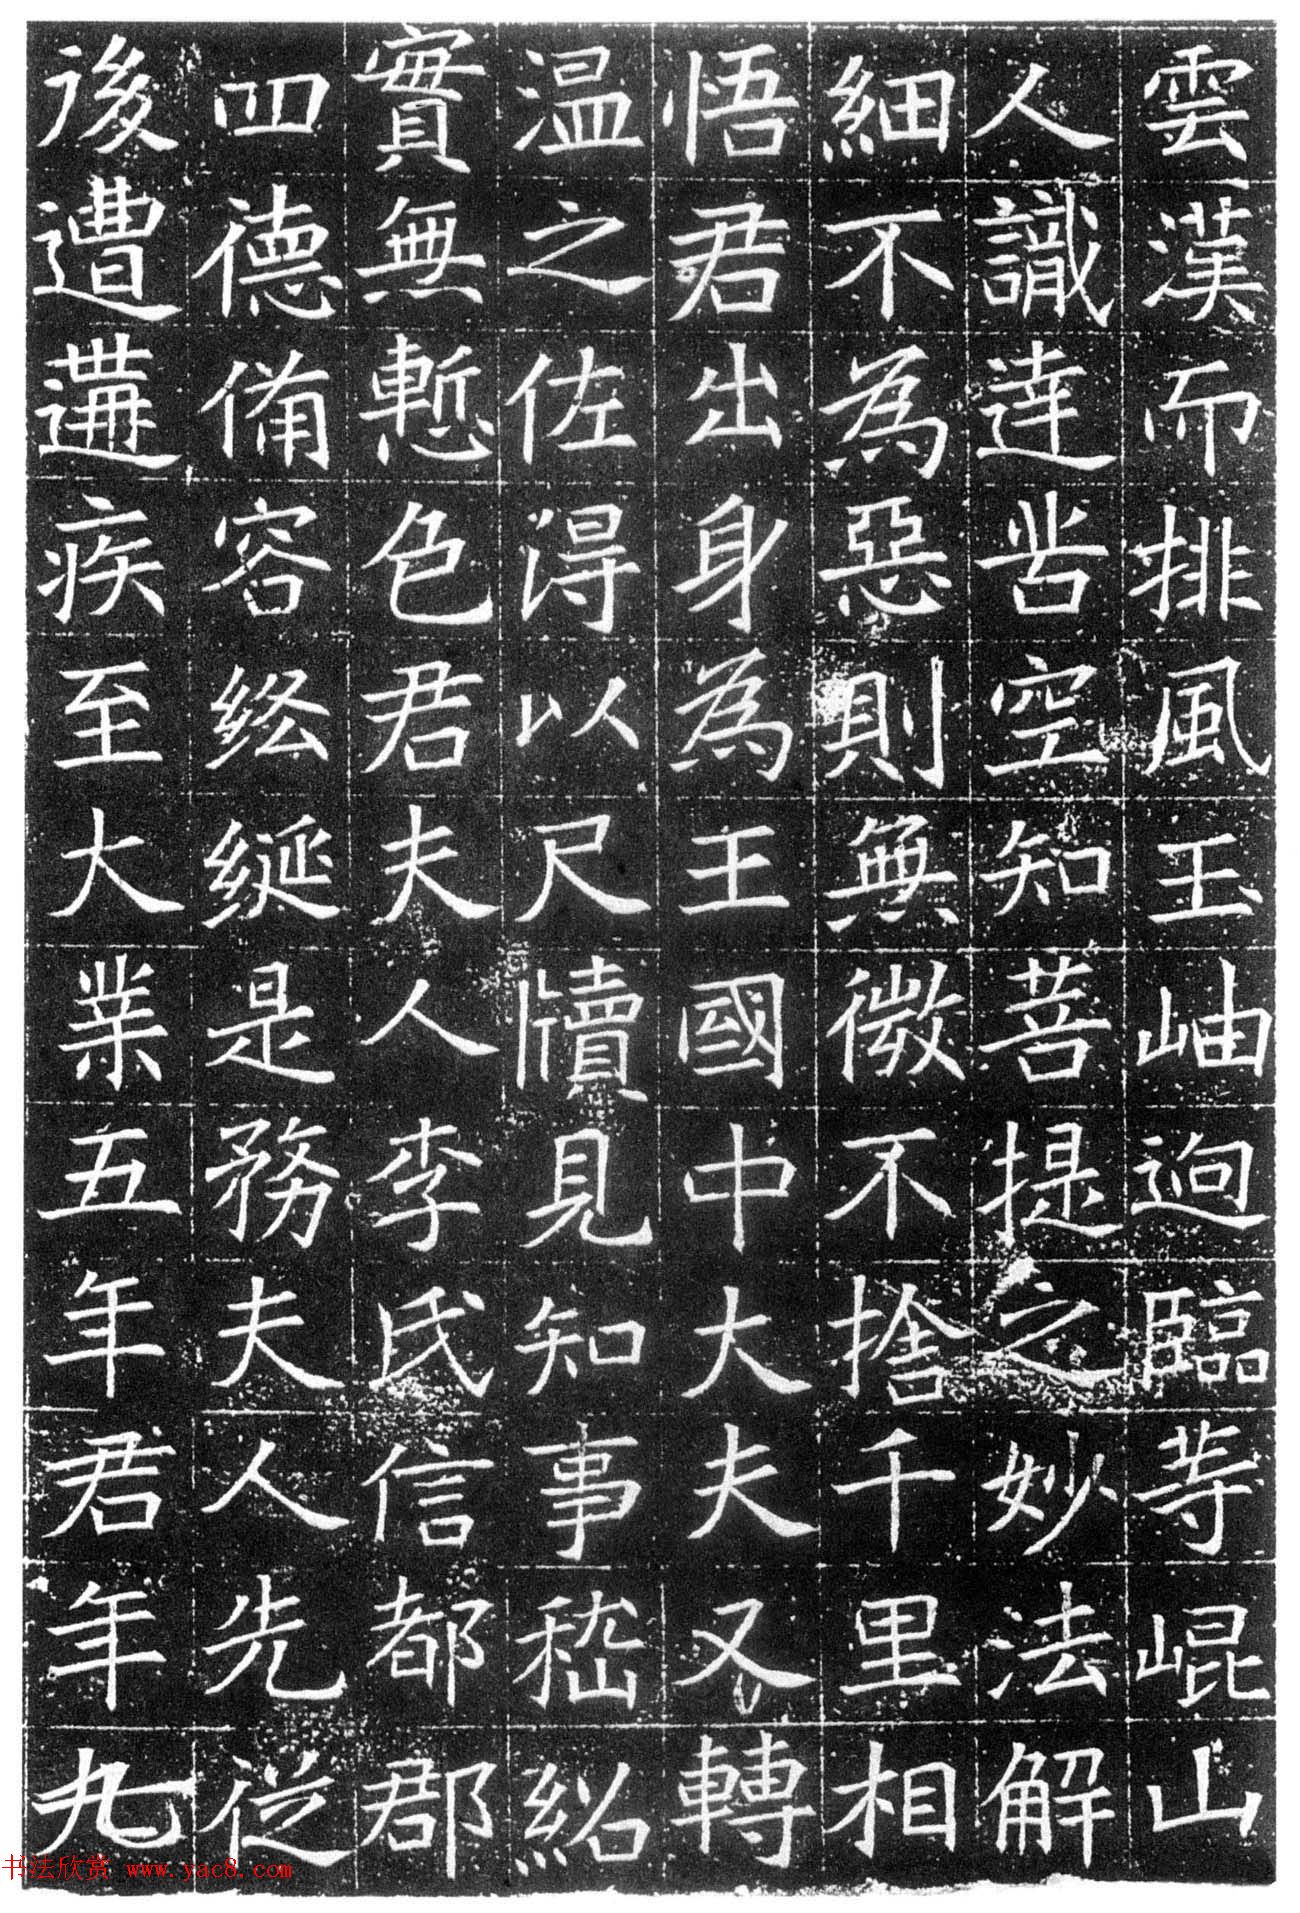 雲漢而排風玉岫迥臨等崐山
人識達苦空知菩提之妙法解
細不為惡則無微不捨千里相
悟君出身為王國中大夫又轉
温之佐淂以尺牘見知事嵇紹
實無慙色君夫人李氏信都郡
四德俻容終綖是務夫人先從
後遭遘疾至大業五年君年九
书法欣赏 www.yac8.com